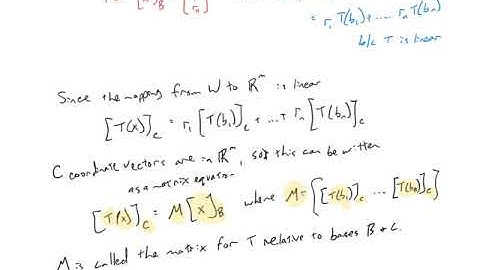 [x]_B [r_n]
= r₁T(b₁)+....r_nT(b_n)
b/c T is linear
Since the mapping from W to ℝᵐ is linear
[T(x)]_C = r₁[T(b₁)]_C + ... + r_n[T(b_n)]_C
C coordinate vectors are in ℝᵐ, so this can be written
as a matrix equation
[T(x)]_C = M[x]_B where M = [[T(b₁)]_C ... [T(b_n)]_C]
M is called the matrix for T relative to bases B & C.